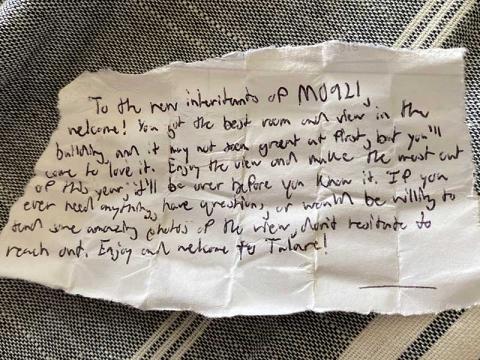 To the new inheritants of M0921
welcome! You got the best room and view in the
building, and it may not seem great at first, but you'll
come to love it. Enjoy the view and make the most out
of this year, it'll be over before you know it. If you
ever need anything, have questions, or would be willing to
send some amazing photos of the view, don't hesitate to
reach out. Enjoy and welcome to Tulane!